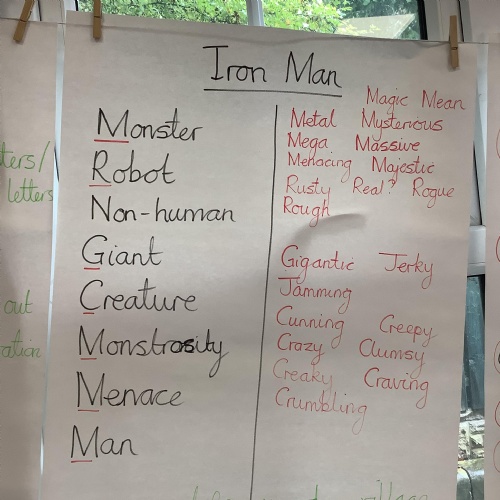 Iron Man
Monster
Robot
Non-human
Giant
Creature
Monstrosity
Menace
Man
Magic Mean
Metal Mysterious
Mega Massive
Menacing Majestic
Rusty Real? Rogue
Rough
Gigantic Jerky
Jamming
Cunning Creepy
Crazy Clumsy
Creaky Craving
Crumbling
letters
out